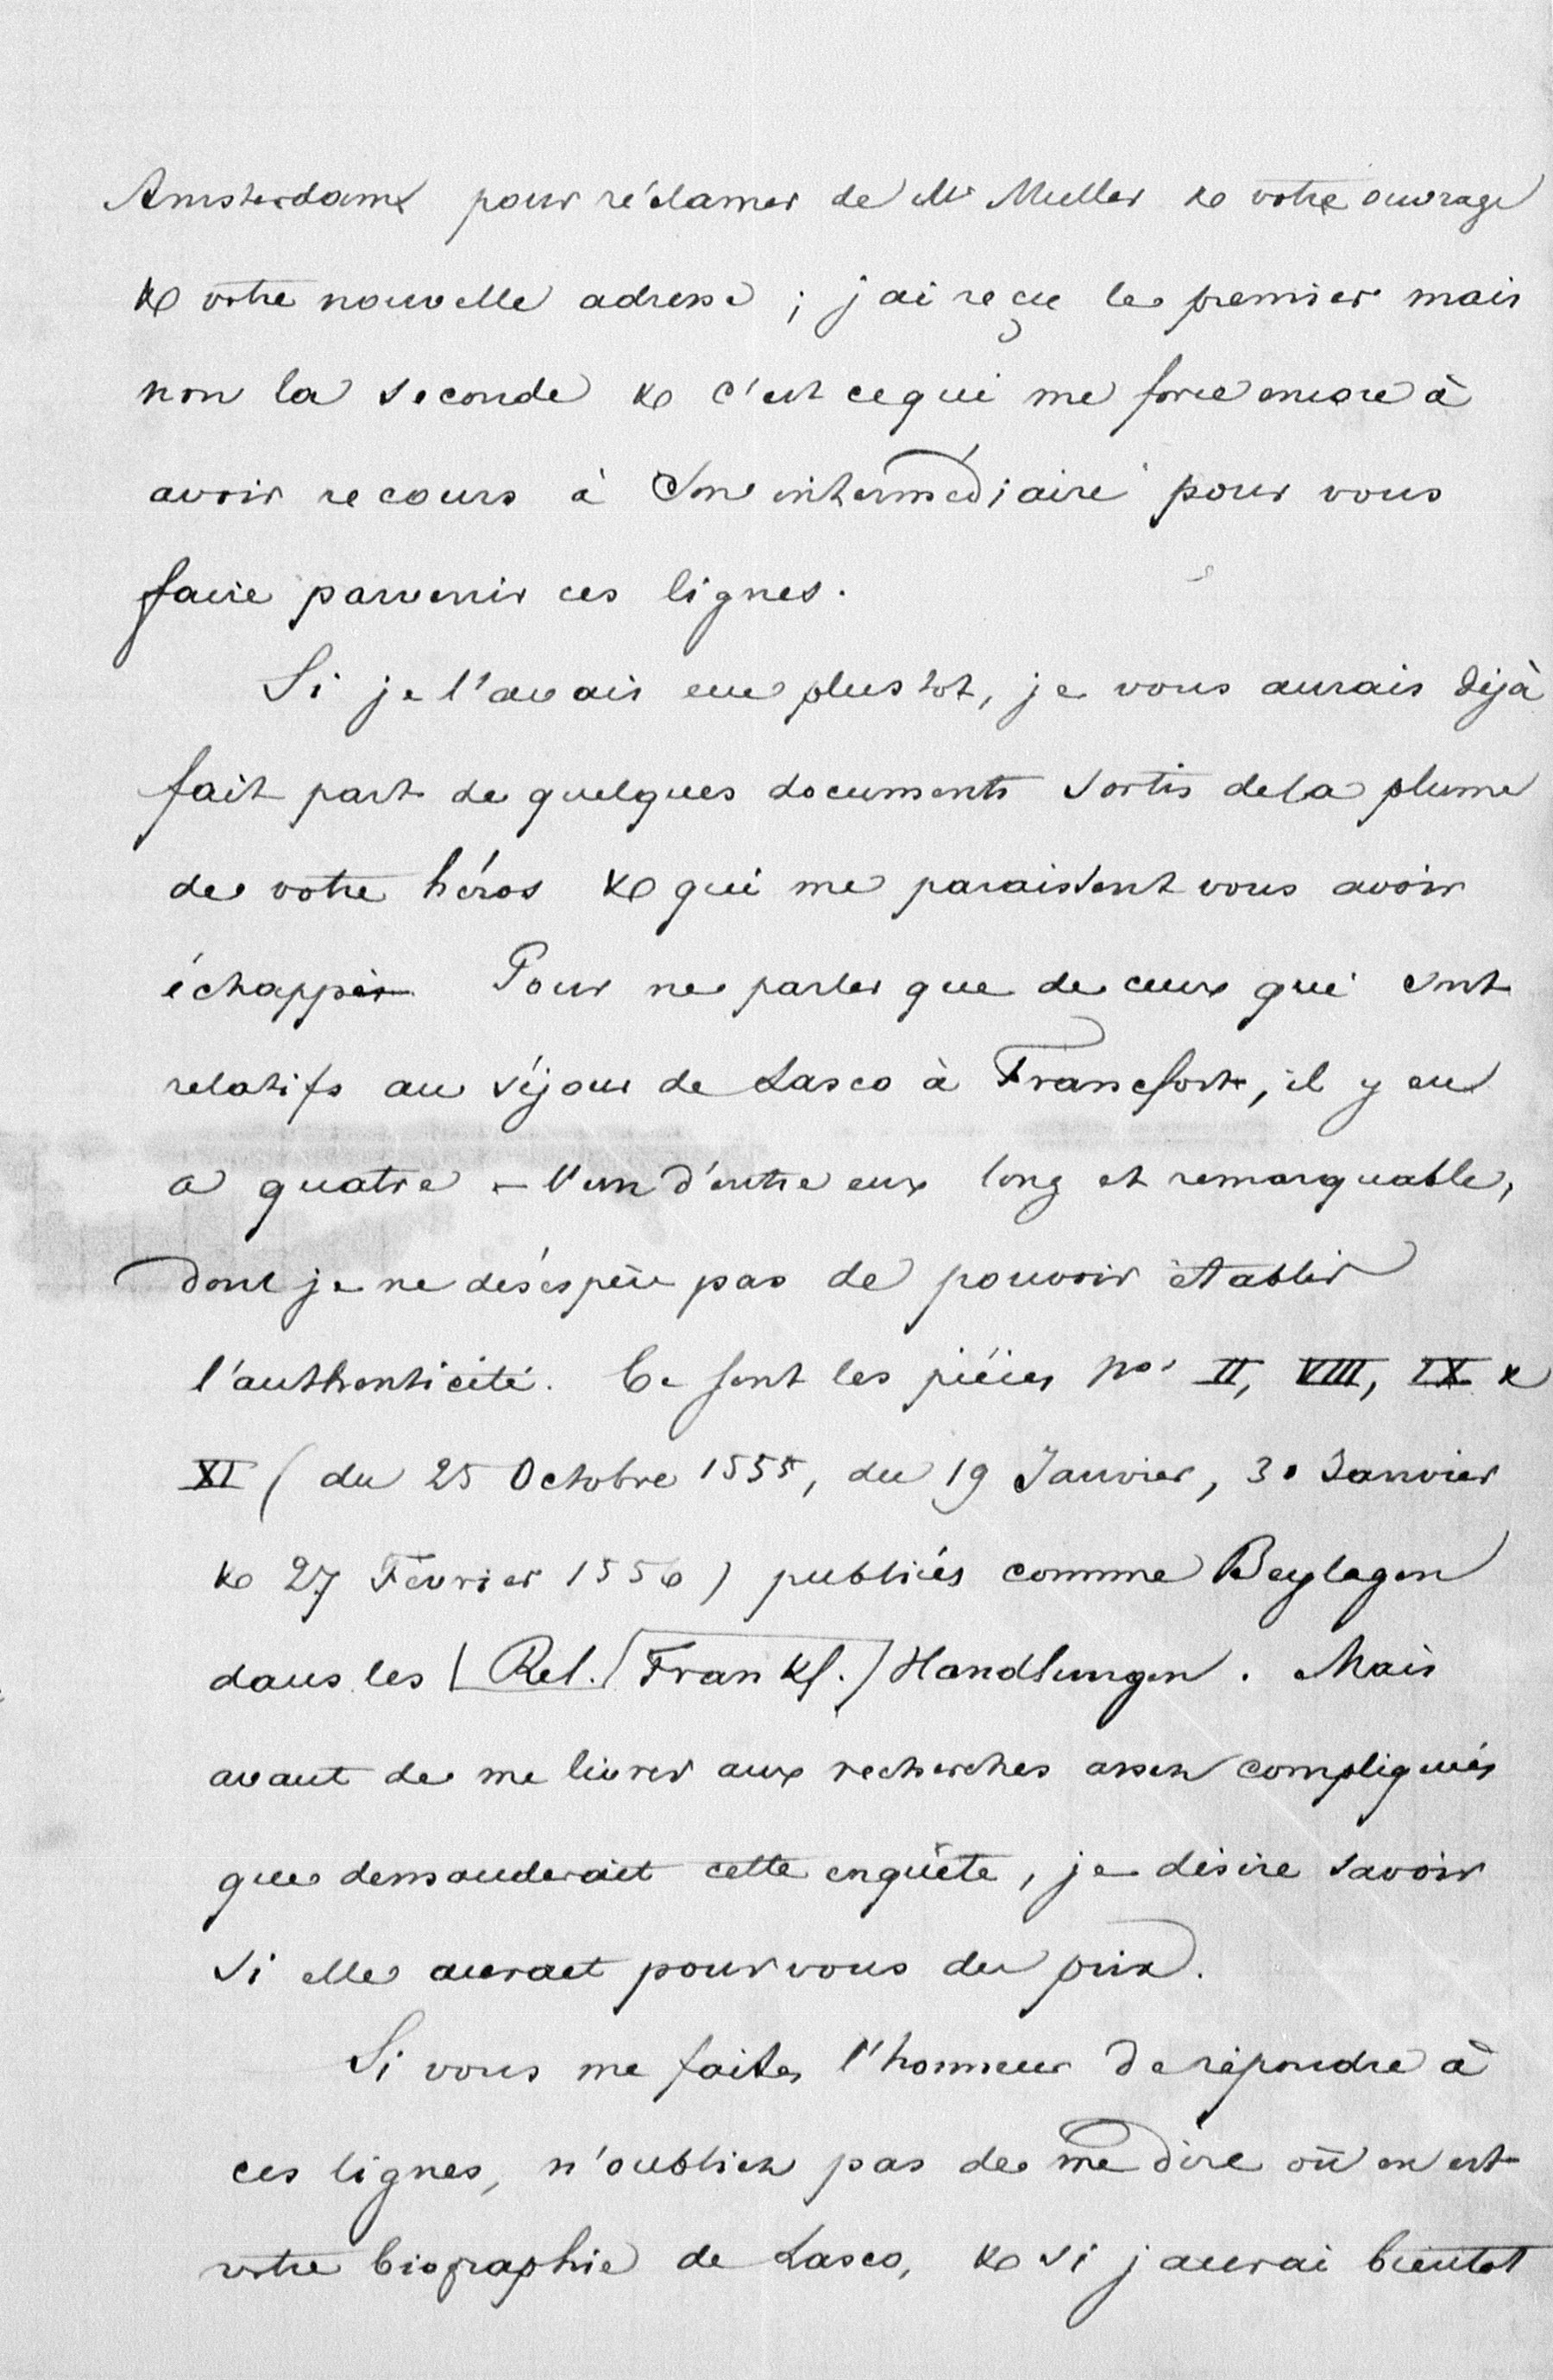 Amsterdam pour réclamer de Mr Muller & votre ouvrage
& votre nouvelle adresse ; j'ai reçu le premier mais
non la seconde & c'est ce qui me force encore à
avoir recours à son intermédiaire pour vous
faire parvenir ces lignes.
Si je l'avais eue plus tot, je vous aurais déjà
fait part de quelques documents sortis de la plume
de votre héros & qui me paraissent vous avoir
échappé. Pour ne parler que de ceux qui sont
relatifs au séjour de Lasco à Francfort, il y en
a quatre – l'un d'entre eux long et remarquable,
dont je ne désespère pas de pouvoir établir
l'authenticité. Ce sont les pièces Nos II, VIII, IX &
XI (du 25 Octobre 1555, du 19 Janvier, 30 Janvier
& 27 Février 1556) publiés comme Beylagen
dans les | Rel. / Frankf. / Handlungen. Mais
avant de me livrer aux recherches assez compliquées
que demanderait cette enquête, je désire savoir
si elle aurait pour vous du prix.
Si vous me faites l'honneur de répondre à
ces lignes, n'oubliez pas de me dire où en est
votre biographie de Lasco, & si j'aurai bientot